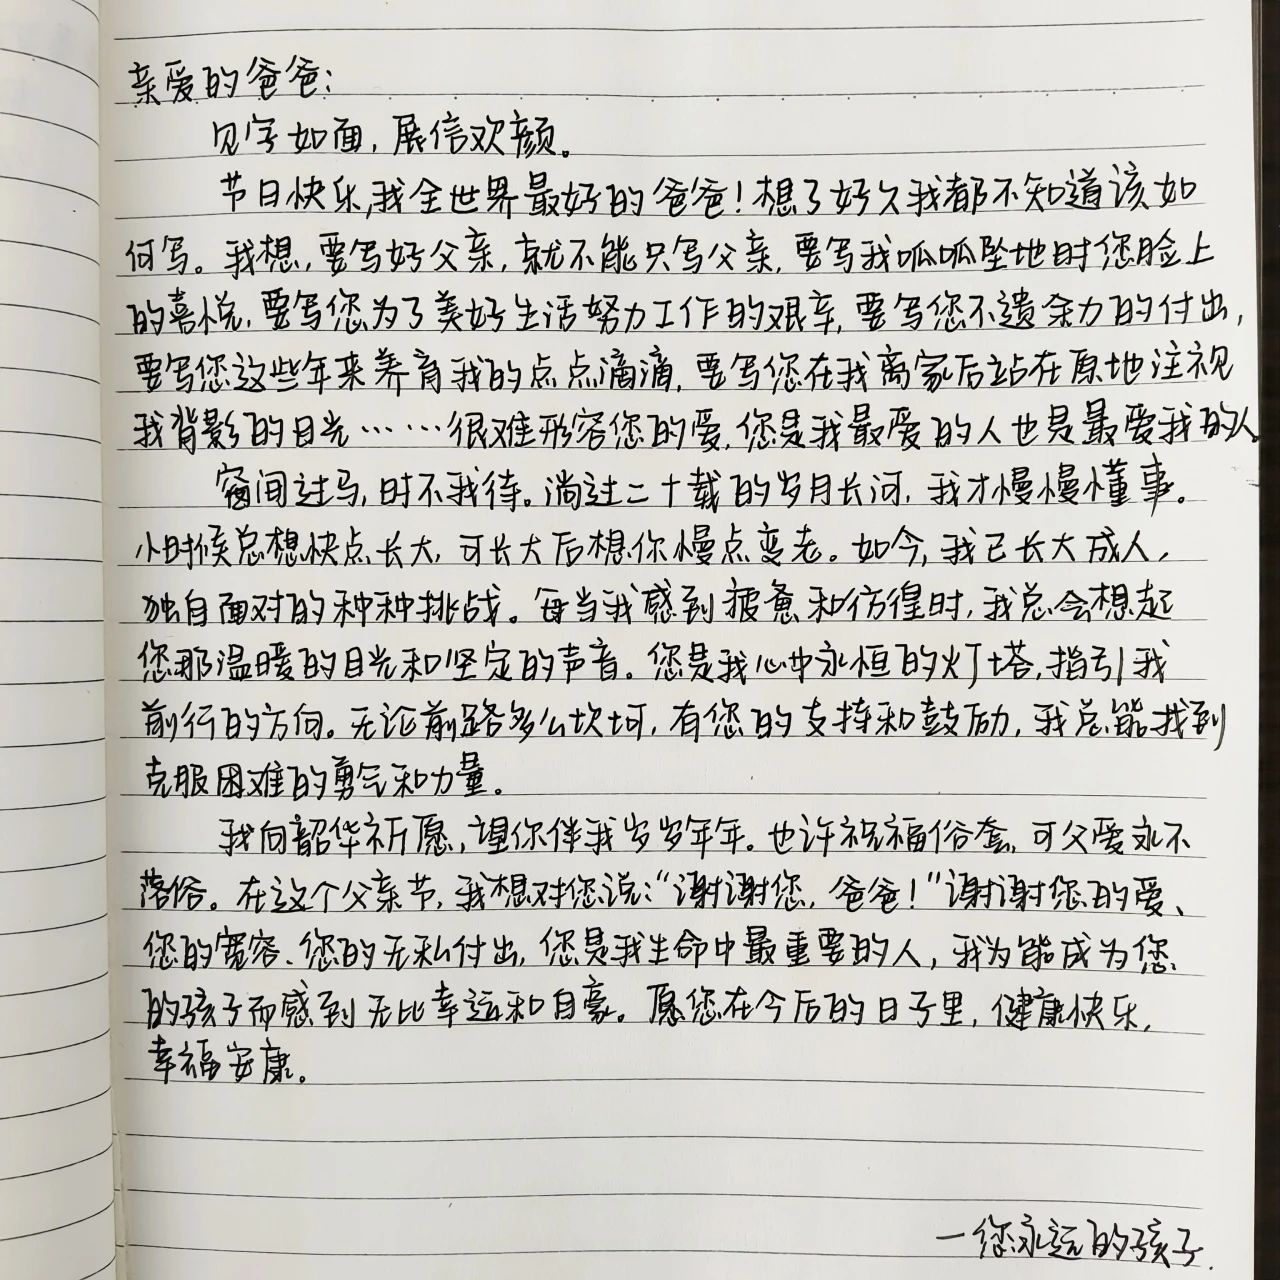 亲爱的爸爸:
见字如面,展信欢颜。
节日快乐,我全世界最好的爸爸!想了好久我都不知道该如
何写。我想,要写好父亲,就不能只写父亲,要写我呱呱坠地时您脸上
的喜悦,要写您为了美好生活努力工作的艰辛,要写您不遗余力的付出,
要写您这些年来养育我的点点滴滴,要写您在我离家后站在原地注视
我背影的目光……很难形容您的爱,您是我最爱的人也是最爱我的人。
窗间过马,时不我待。淌过二十载的岁月长河,我才慢慢懂事。
小时候总想快点长大,可长大后想你慢点变老。如今,我已长大成人,
独自面对的种种挑战。每当我感到疲惫和彷徨时,我总会想起
您那温暖的目光和坚定的声音。您是我心中永恒的灯塔,指引我
前行的方向。无论前路多么坎坷,有您的支持和鼓励,我总能找到
克服困难的勇气和力量。
我向韶华祈愿,望你伴我岁岁年年。也许祝福俗套,可父爱永不
落俗。在这个父亲节,我想对您说:“谢谢您,爸爸!”谢谢您的爱、
您的宽容、您的无私付出,您是我生命中最重要的人,我为能成为您
的孩子而感到无比幸运和自豪。愿您在今后的日子里,健康快乐,
幸福安康。
—您永远的孩子.